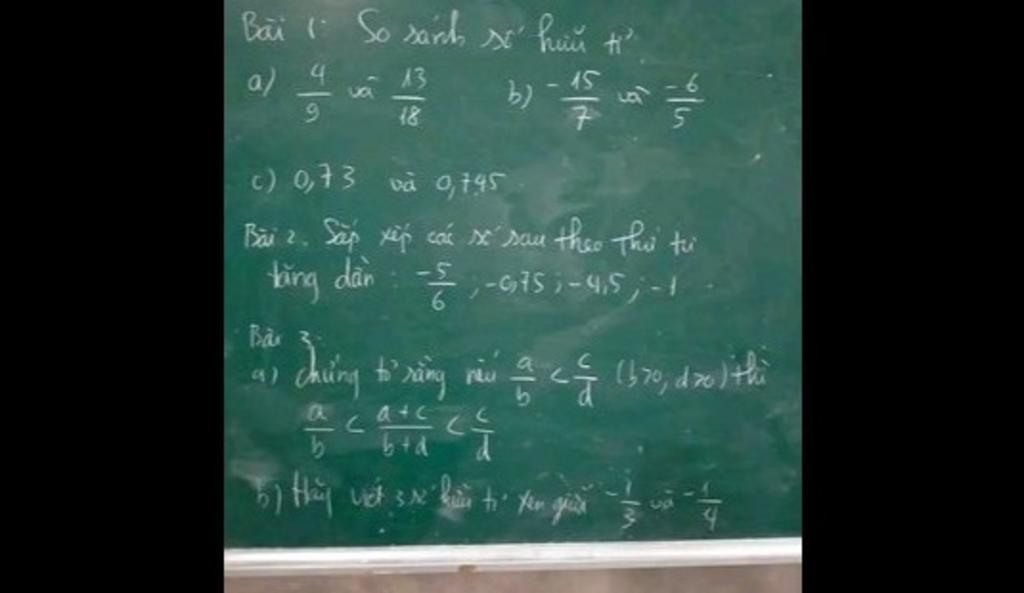 Bài 1: So sánh số hữu tỉ
a) 4/9 và 13/18 b) -15/7 và -6/5
c) 0,73 và 0,745
Bài 2. Sắp xếp các số sau theo thứ tự
tăng dần: -5/6; -0,75; -4,5; -1
Bài 3:
a) Chứng tỏ rằng nếu a/b < c/d (b>0, d>0) thì
a/b < a+c/b+d < c/d
b) Hãy viết 3 số hữu tỉ xen giữa -1/3 và -1/4